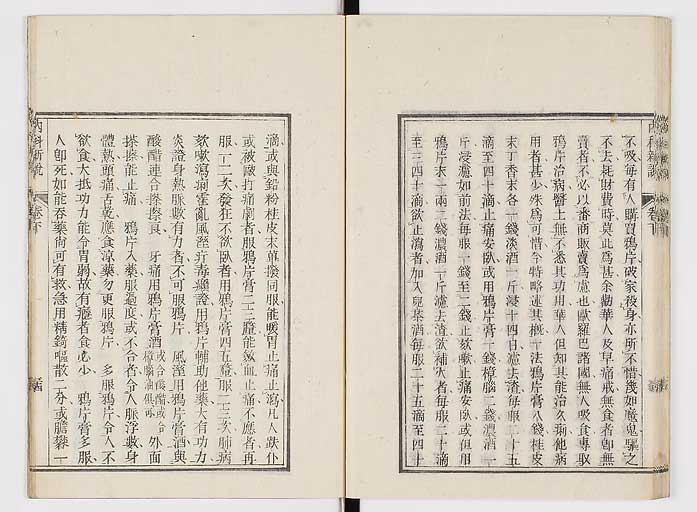 不吸每有人購買鴉片破家役身亦所不惜幾如魔鬼驅之
不去耗財費時莫此爲甚余勸華人及早痛戒無食者卽無
賣者不必以番商販賣爲慮也歐羅巴諸國無人吸食專取
鴉片治病醫士無不悉其功用華人但知其能治久痢他病
用者甚少殊爲可惜今特略述其概一法鴉片膏八錢桂皮
末丁香末各一錢淡酒一斤浸十四日濾去渣每服二十五
滴至四十滴止痛安臥或用鴉片膏一錢樟腦二錢濃酒一
斤浸濾如前法每服一錢至二錢止欬嗽止痛安臥或但用
鴉片末一兩二錢濃酒一斤濾去渣欲補火者每服二十滴
至三四十滴欲止瀉者加入兒茶酒每服二十五滴至四十
滴或與鉛粉桂皮末葦撥同服能暖胃止痛止瀉凡人跌仆
或被毆打痛劇者服鴉片膏二三釐能鎮血止痛不應者再
服一二次發狂不欲臥者用鴉片膏四五釐服二三次肺病
欬嗽瀉痢霍亂風溼疔毒癰證用鴉片輔助他藥大有功力
炎證身熱脈數有力者不可服鴉片 風溼用鴉片膏酒與
酸醋連合搽擦良 牙痛用鴉片膏酒或合酸醋或合樟腦油俱可外面
搽擦能止痛 鴉片入藥服過度或不合者令人脈浮數身
體熱頭痛舌乾應食凉藥勿更服鴉片 多服鴉片令人不
欲食大抵功力能令胃弱故有癮者食必少 鴉片膏多服
人卽死如能吞藥尙可有救急用精錡嘔散二分或膽礬一
內科新說
卷下
內科新說
卷下